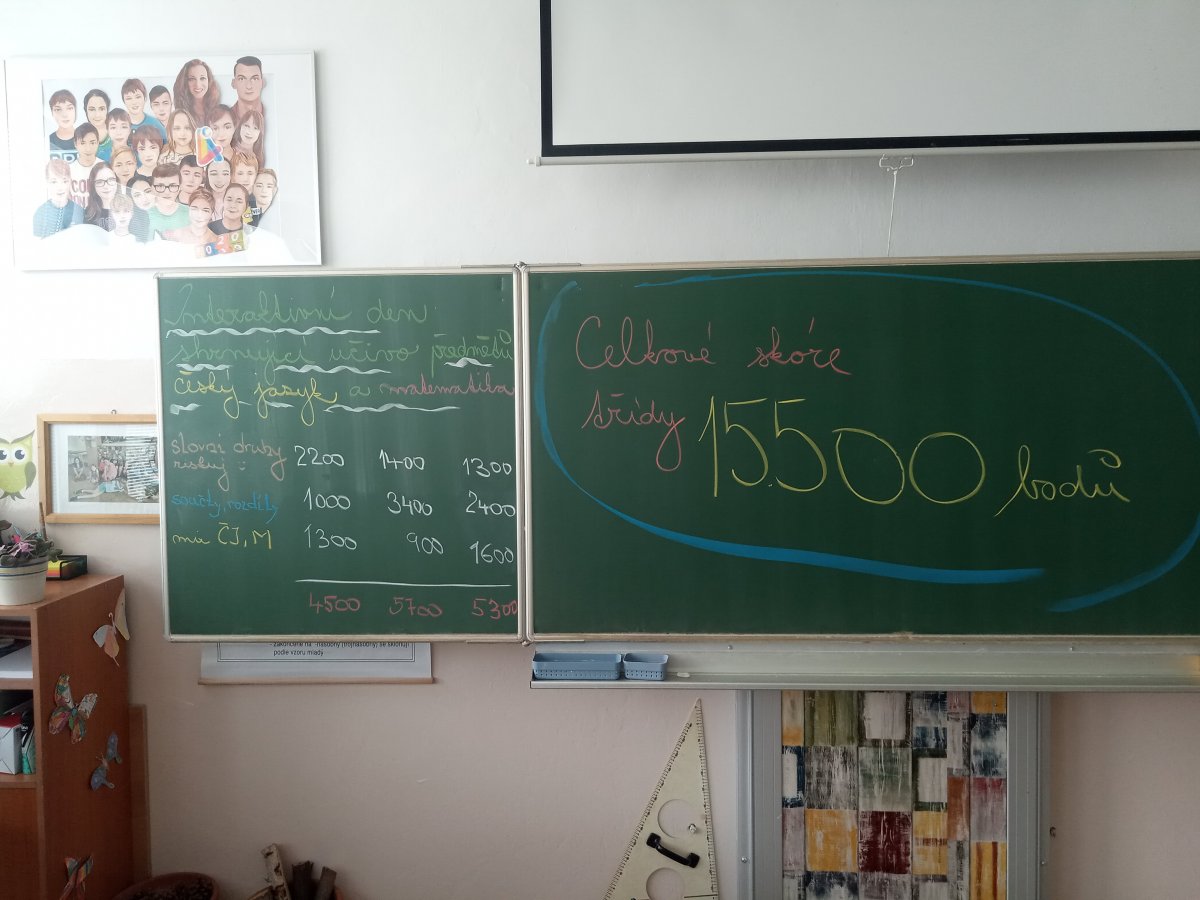 Interaktivní den
shrnující učivo předmětů
český jazyk a matematika
slovní druhy
riskuj: 2200 1400 1300
součty, rozdíly 1000 3400 2400
mix ČJ, M 1300 900 1600
4500 5700 5300
Celkové skóre
třídy 15.500 bodů
- zakončené na -násobný (trojnásobný) se skloňují
podle vzoru mladý